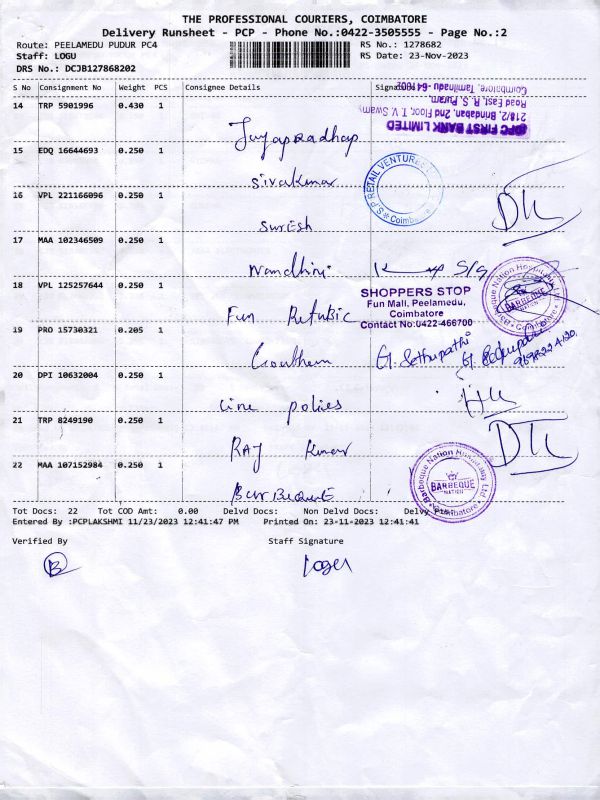 THE PROFESSIONAL COURIERS, COIMBATORE
Delivery Runsheet - PCP - Phone No.:0422-3505555 - Page No.:2
Route: PEELAMEDU PUDUR PC4
RS No.: 1278682
Staff: LOGU
RS Date: 23-Nov-2023
DRS No.: DCJB127868202
S No Consignment No Weight PCS Consignee Details Signature
IDFC FIRST BANK LIMITED
218/2, Brindaban, 2nd Floor, T. V. Swamy
Road East, R. S. Puram,
Coimbatore, Tamilnadu
14 TRP 5901996 0.430 1
15 EDQ 16644693 0.250 1
Sivakumar
P S P RETAIL VENTURE
Coimbatore
16 VPL 221166096 0.250 1
Suresh
17 MAA 102346509 0.250 1
Nandhini
Barbeque Nation Hospitality Ltd
BARBEQUE
NATION
Coimbatore
18 VPL 125257644 0.250 1
Fun Refubic
SHOPPERS STOP
Fun Mall, Peelamedu,
Coimbatore
Contact No:0422-466700
19 PRO 15730321 0.205 1
Gouthem G. Sethupathi
20 DPI 10632004 0.250 1
Cine polies
21 TRP 8249190 0.250 1
RAJ Kumar
22 MAA 107152984 0.250 1
Barbeque Nation Hospitality Ltd
BARBEQUE
NATION
Coimbatore
Tot Docs: 22 Tot COD Amt: 0.00 Delvd Docs: Non Delvd Docs:
Entered By :PCPLAKSHMI 11/23/2023 12:41:47 PM Printed On: 23-11-2023 12:41:41
Verified By Staff Signature
B